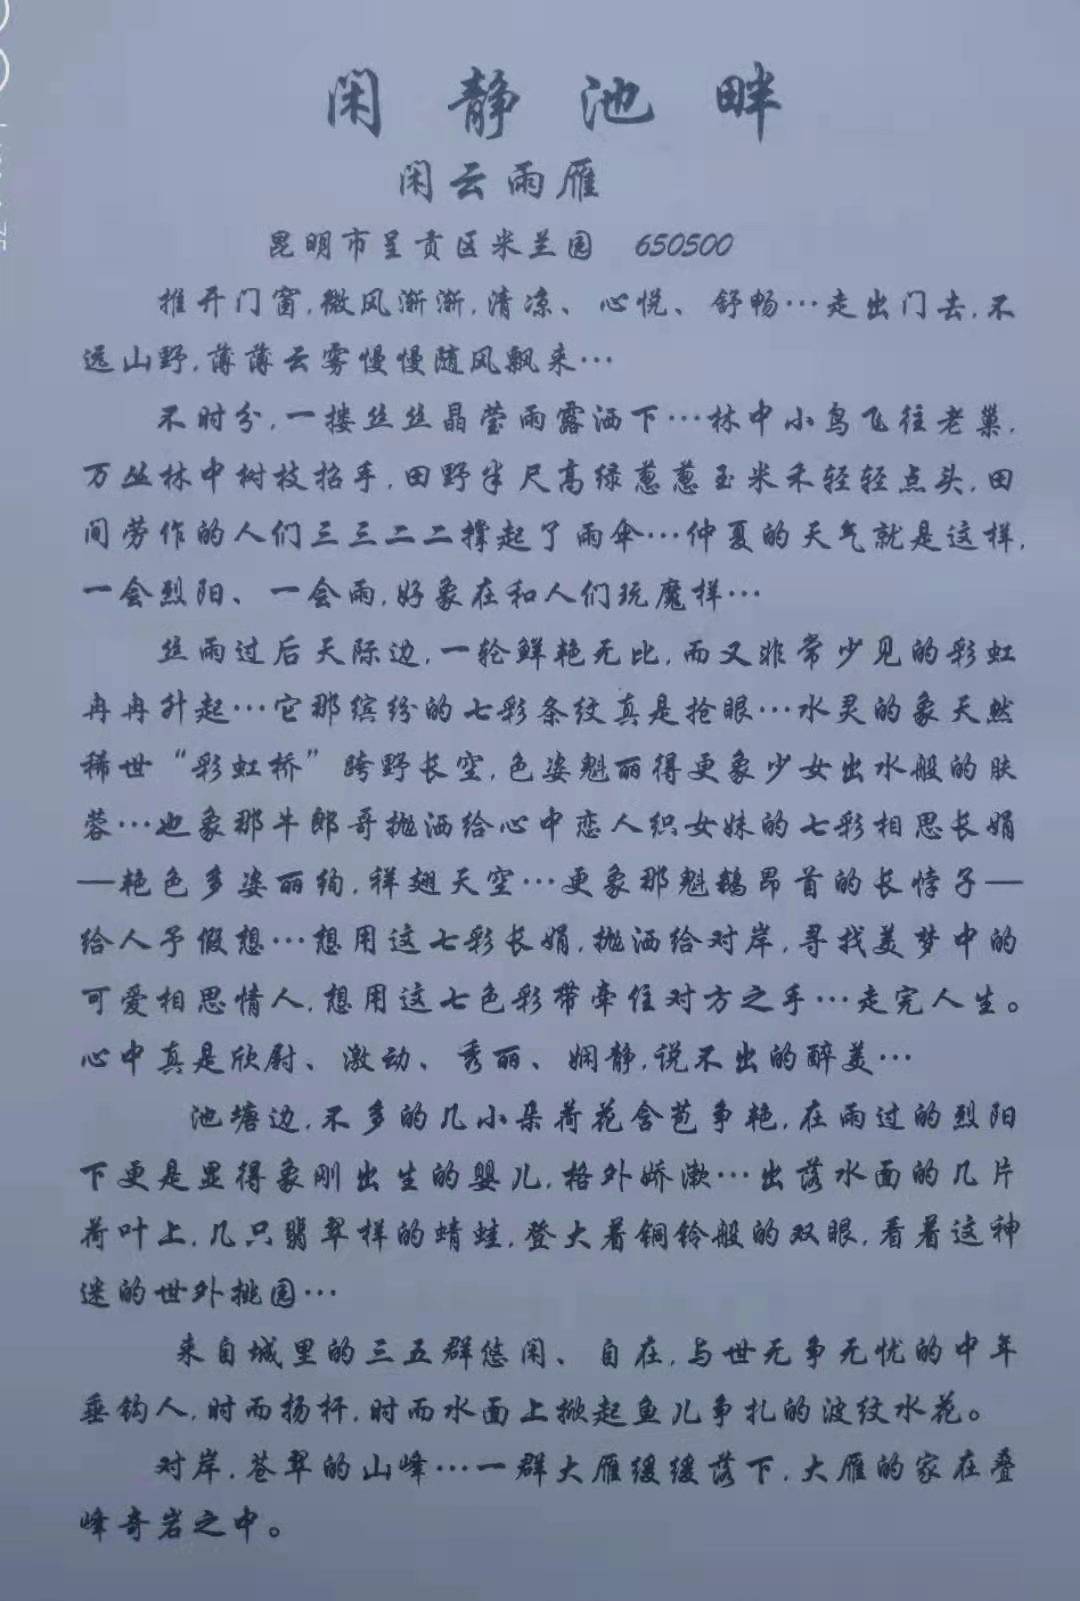 闲静池畔
闲云雨雁
昆明市呈贡区米兰园 650500
推开门窗,微风渐渐,清凉、心悦、舒畅…走出门去,不
远山野,薄薄云雾慢慢随风飘来…
不时分,一搂丝丝晶莹雨露洒下…林中小鸟飞往老巢,
万丛林中树枝招手,田野半尺高绿葱葱玉米禾轻轻点头,田
间劳作的人们三三二二撑起了雨伞…仲夏的天气就是这样,
一会烈阳、一会雨,好象在和人们玩魔样…
丝雨过后天际边,一轮鲜艳无比,而又非常少见的彩虹
冉冉升起…它那缤纷的七彩条纹真是抢眼…水灵的象天然
稀世“彩虹桥”跨野长空,色姿魁丽得更象少女出水般的肤
蓉…也象那牛郎哥抛洒给心中恋人织女妹的七彩相思长娟
—艳色多姿丽绚,祥翅天空…更象那魁鹅昂首的长悖子—
给人予假想…想用这七彩长娟,抛洒给对岸,寻找美梦中的
可爱相思情人,想用这七色彩带牵住对方之手…走完人生。
心中真是欣尉、激动、秀丽、娴静,说不出的醉美…
池塘边,不多的几小朵荷花含苞争艳,在雨过的烈阳
下更是显得象刚出生的婴儿,格外娇漱…出落水面的几片
荷叶上,几只翡翠样的蜻蛙,登大着铜铃般的双眼,看着这神
迷的世外挑园…
来自城里的三五群悠闲、自在,与世无争无忧的中年
垂钩人,时而扬杆,时而水面上掀起鱼儿争扎的波纹水花。
对岸,苍翠的山峰…一群大雁缓缓落下,大雁的家在叠
峰奇岩之中。